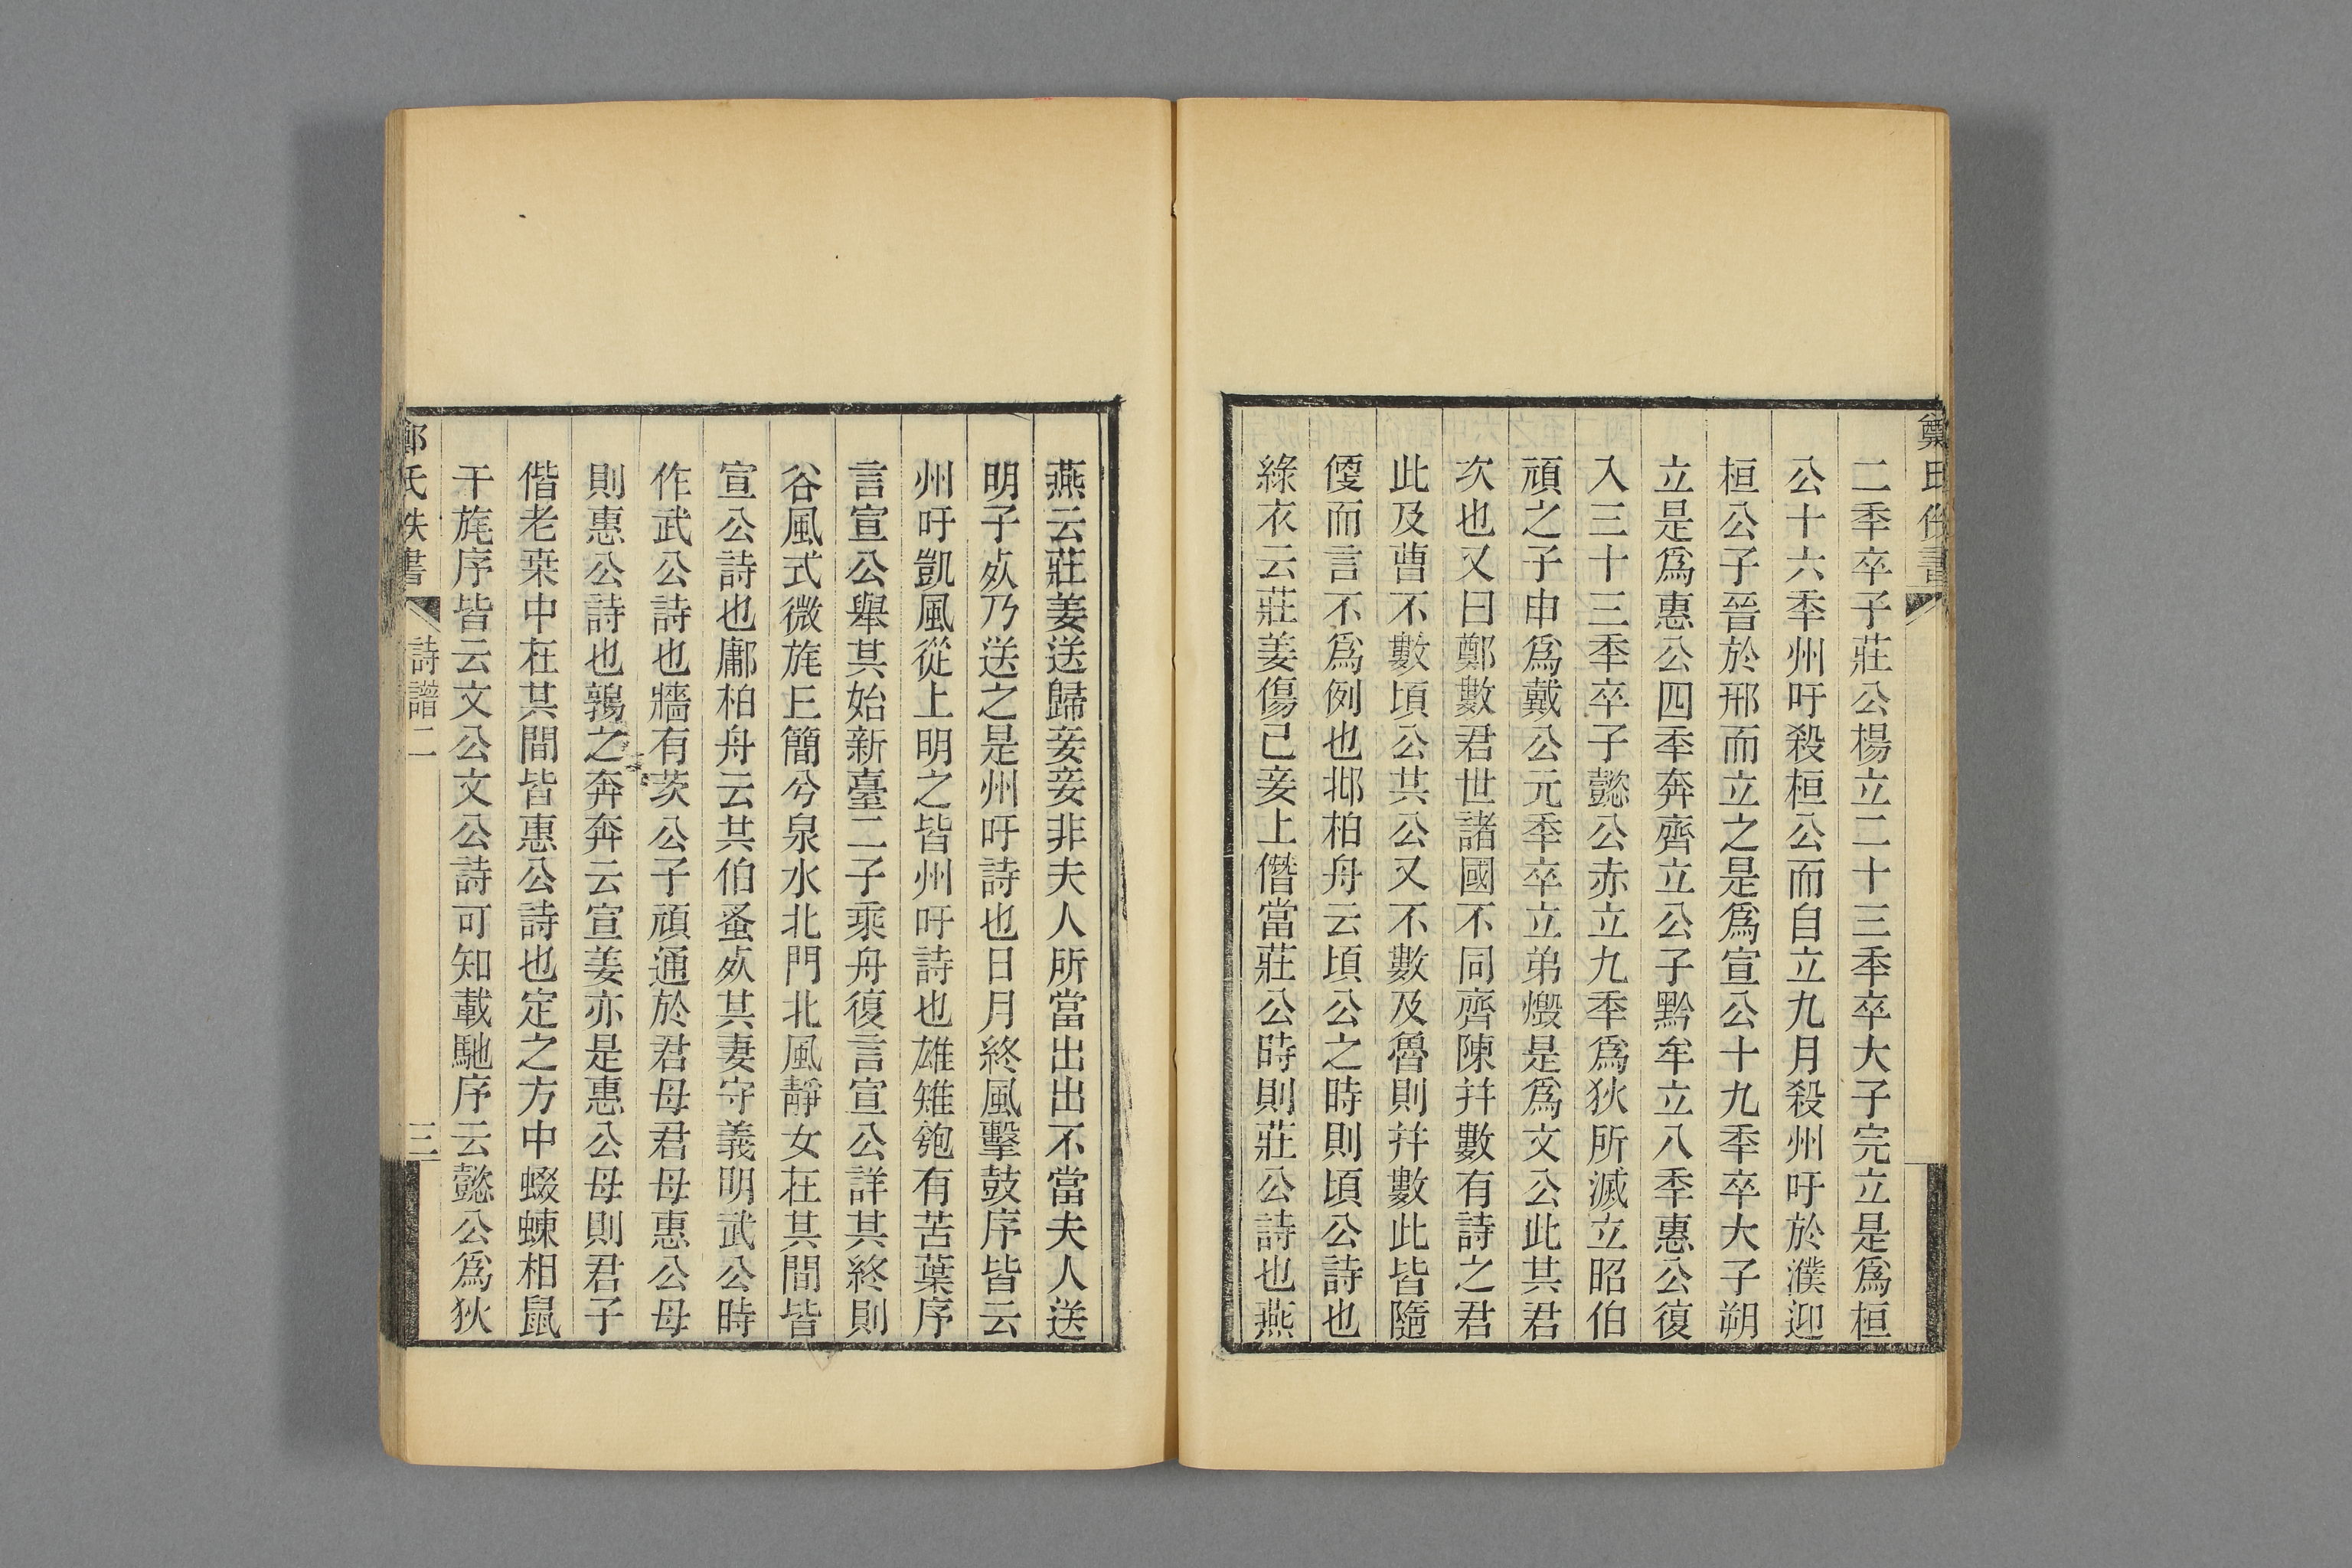 鄭氏佚書
二秊卒子莊公楊立二十三秊卒大子完立是爲桓
公十六秊州吁殺桓公而自立九月殺州吁於濮迎
桓公子晉於邢而立之是爲宣公十九秊卒大子朔
立是爲惠公四秊奔齊立公子黔牟立八秊惠公復
入三十三秊卒子懿公赤立九秊爲狄所滅立昭伯
頑之子申爲戴公元秊卒立弟燬是爲文公此其君
次也又曰鄭數君世諸國不同齊陳幷數有詩之君
此及曹不數頃公共公又不數及魯則幷數此皆隨
便而言不爲例也邶柏舟云頃公之時則頃公詩也
綠衣云莊姜傷己妾上僭當莊公時則莊公詩也燕
燕云莊姜送歸妾妾非夫人所當出出不當夫人送
明子㱙乃送之是州吁詩也日月終風擊鼓序皆云
州吁凱風從上明之皆州吁詩也雄雉匏有苦葉序
言宣公舉其始新臺二子乘舟復言宣公詳其終則
谷風式微旄丘簡兮泉水北門北風靜女在其間皆
宣公詩也鄘柏舟云共伯蚤㱙其妻守義明武公時
作武公詩也牆有茨公子頑通於君母君母惠公母
則惠公詩也鶉之奔奔云宣姜亦是惠公母則君子
偕老桒中在其間皆惠公詩也定之方中蝃蝀相鼠
干旄序皆云文公文公詩可知載馳序云懿公爲狄
鄭氏佚書
詩譜二
三